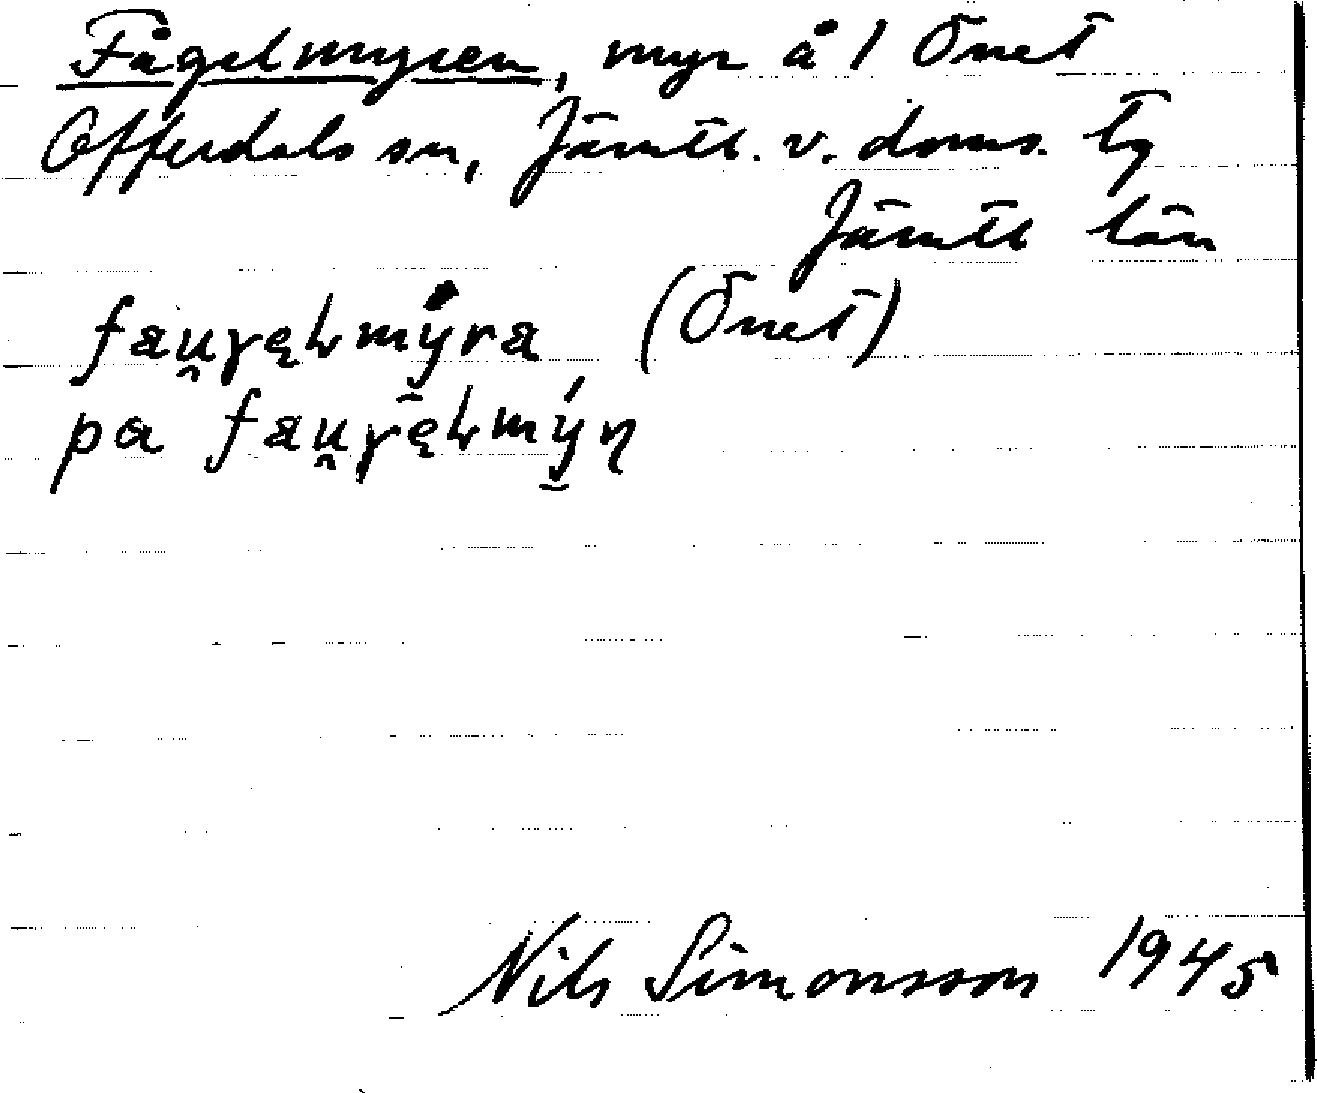 Fågelmyren, myr å 1 Önet
Offerdals sn, Jämtl. v. doms. tg
Jämtl län
fau̯γęƚmy̆ra (Önet)
pa fau̯γęƚmýn
Nils Simonsson 1945